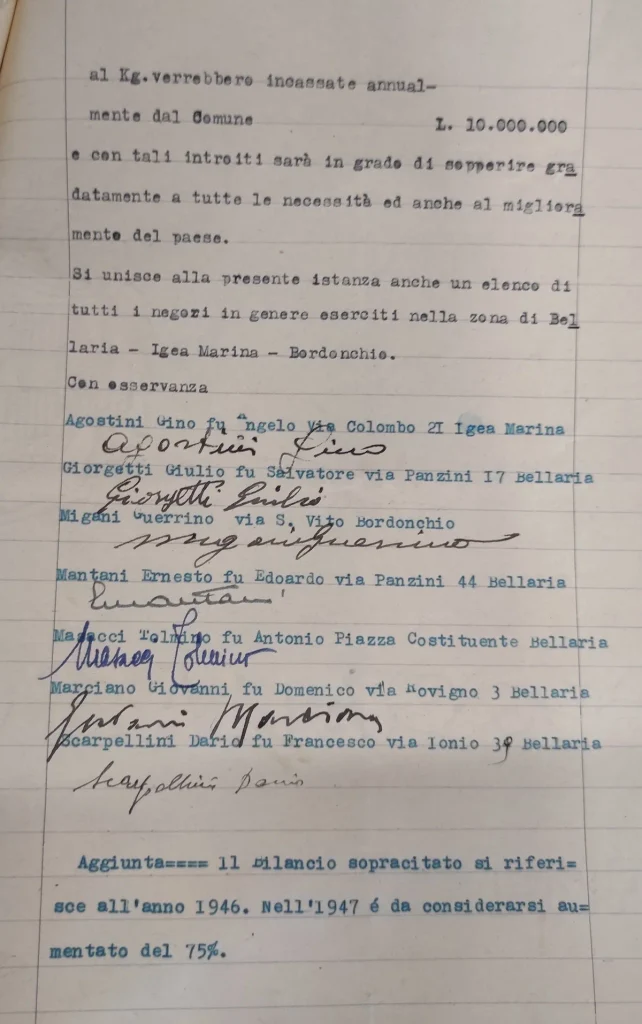 al Kg.verrebbero incassate annual-
mente dal Comune L. 10.000.000
e con tali introiti sarà in grado di sopperire gra
datamente a tutte le necessità ed anche al migliora
mento del paese.
Si unisce alla presente istanza anche un elenco di
tutti i negozi in genere eserciti nella zona di Bel
laria - Igea Marina - Bordonchio.
Con osservanza
Agostini Gino fu Angelo via Colombo 21 Igea Marina
Agostini Gino
Giorgetti Giulio fu Salvatore via Panzini 17 Bellaria
Giorgetti Giulio
Migani Guerrino via S. Vito Bordonchio
Migani Guerrino
Mantani Ernesto fu Edoardo via Panzini 44 Bellaria
E Mantani
Masacci Tolmino fu Antonio Piazza Costituente Bellaria
Masacci Tolmino
Marciano Giovanni fu Domenico via Rovigno 3 Bellaria
Marciano
Scarpellini Dario fu Francesco via Ionio 39 Bellaria
Scarpellini Dario
Aggiunta==== il Bilancio sopracitato si riferi=
sce all'anno 1946. Nell'1947 é da considerarsi au=
mentato del 75%.